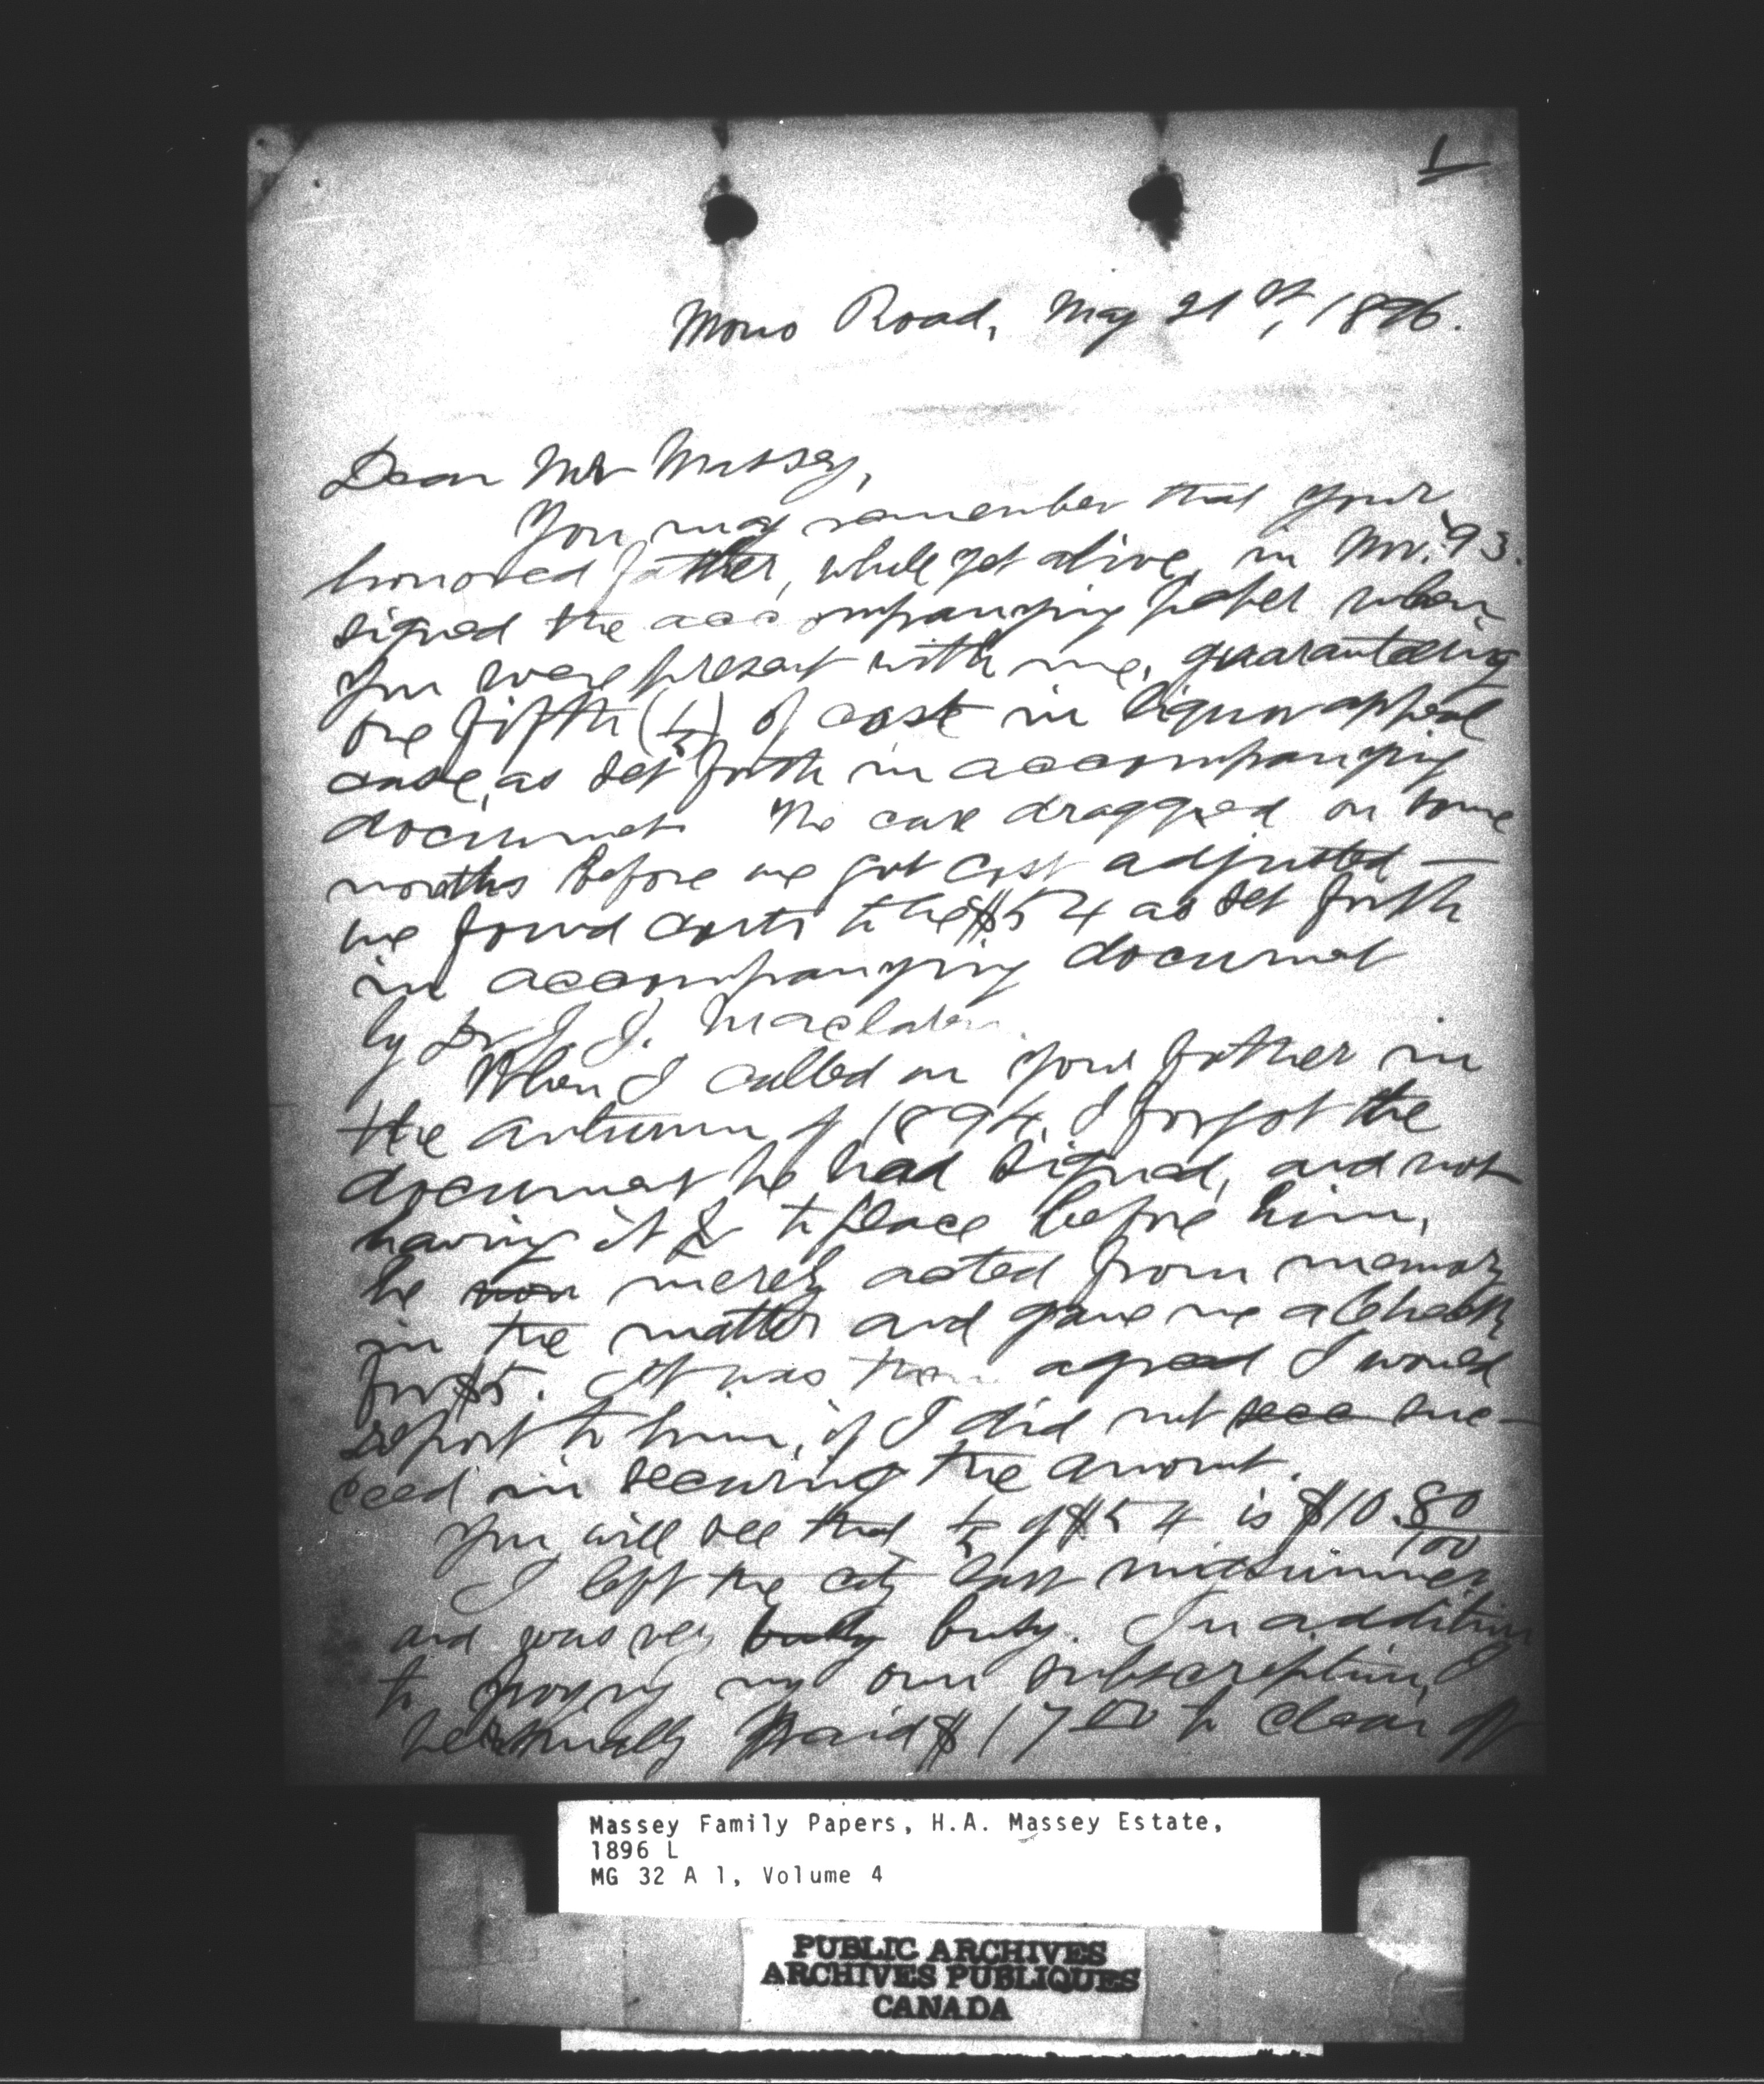 1
Mono Road, May 21st, 1896.
Dear Mr Massey,
You may remember that your
honored father, while yet alive, in Nov. '93.
signed the accompanying paper when
you were present with me, guaranteeing
one fifth (1/5) of cost in liquor appeal
case, as set forth in accompanying
document. The case dragged on some
months before we got cost adjusted —
we found costs to be $54 as set forth
in accompanying document
by Dr J. J. Maclaren.
When I called on your father in
the autumn of 1894, I forgot the
document he had signed, and not
having it to place before him,
he merely acted from memory
in the matter and gave me a check
for $5. It was then agreed I would
report to him, if I did not suc-
ceed in securing the amount.
You will see that 1/5 of $54 is $10.80/100
I left the city last midsummer,
and was very busy. In addition
to paying my own subscription, I
personally paid $17.00 to clear off
Massey Family Papers, H.A. Massey Estate,
1896 L
MG 32 A 1, Volume 4
PUBLIC ARCHIVES
ARCHIVES PUBLIQUES
CANADA